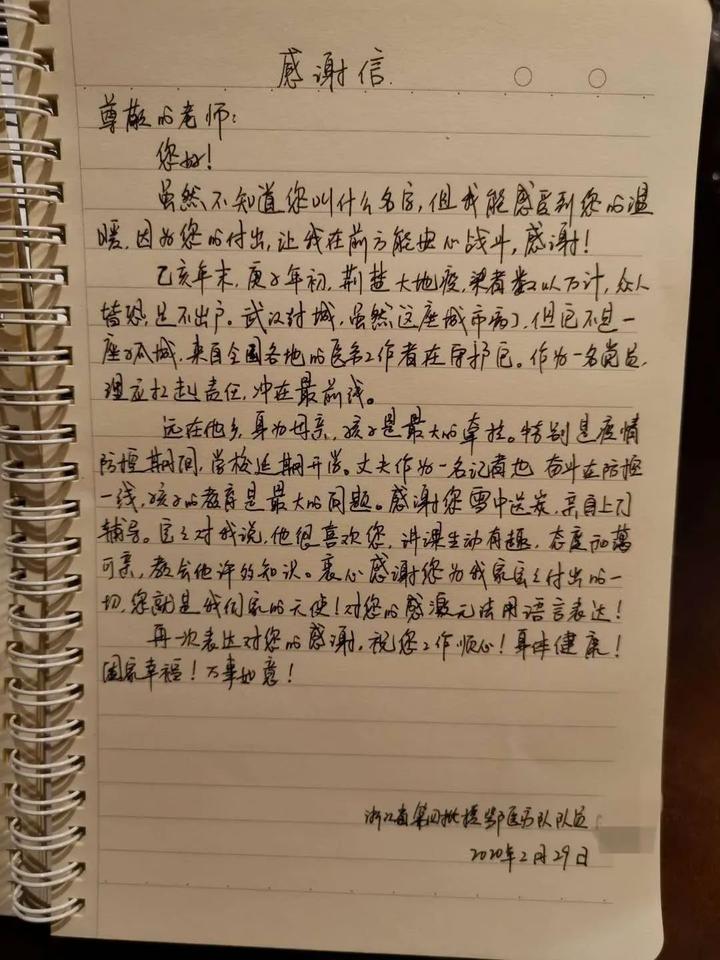 感谢信
尊敬的老师：
您好！
虽然不知道您叫什么名字，但我能感受到您的温
暖，因为您的付出，让我在前方能安心战斗，感谢！
乙亥年末，庚子年初，荆楚大地疫，染者数以万计，众人
皆恐，足不出户。武汉封城，虽然这座城市病了，但它不是一
座孤城，来自全国各地的医务工作者在守护它。作为一名党员，
理应扛起责任，冲在最前线。
远在他乡，身为母亲，孩子是最大的牵挂。特别是疫情
防控期间，学校延期开学。丈夫作为一名记者也奋斗在防控
一线，孩子的教育是最大的问题。感谢您雪中送炭，亲自上门
辅导。宝宝对我说，他很喜欢您，讲课生动有趣，态度和蔼
可亲，教会他许多知识。衷心感谢您为我家宝宝付出的一
切，您就是我们家的天使！对您的感激无法用语言表达！
再一次表达对您的感谢，祝您工作顺心！身体健康！
阖家幸福！万事如意！
浙江省第四批援鄂医疗队队员
2020年2月29日